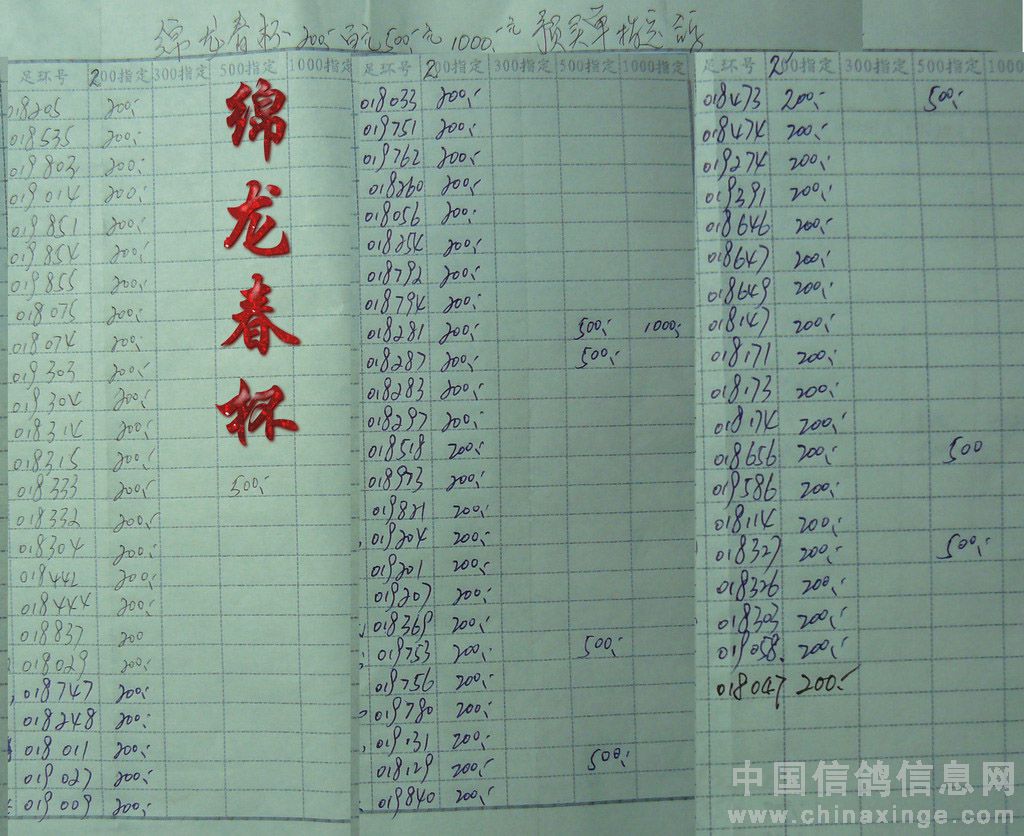 绵龙春杯 200.-百元 500.-元 1000.-元 预买单指定
足环号 200指定 300指定 500指定 1000指定
018205 200.-
018535 200.-
019803 200.-
019014 200.-
019851 200.-
019854 200.-
019855 200.-
018075 200.-
018074 200.-
019303 200.-
019304 200.-
018314 200.-
018315 200.-
018333 200.- 500.-
018332 200.-
018304 200.-
018442 200.-
018444 200.-
018837 200
018029 200.-
018747 200.-
018248 200.-
018011 200.-
019027 200.-
019009 200.-
绵龙春杯
足环号 200指定 300指定 500指定 1000指定
018033 200.-
019751 200.-
019762 200.-
018260 200.-
018056 200.-
018254 200.-
018792 200.-
018794 200.-
018281 200.- 500.- 1000.-
018287 200.- 500.-
018283 200.-
018297 200.-
018518 200.-
018973 200.-
019821 200.-
019204 200.-
019201 200.-
019207 200.-
018369 200.-
019753 200.- 500.-
019756 200.-
019780 200.-
019131 200.-
018129 200.- 500.-
019840 200.-
足环号 200指定 300指定 500指定 1000
018473 200.- 500.-
018474 200.-
019274 200.-
019391 200.-
018646 200.-
018647 200.-
018649 200.-
018147 200.-
018171 200.-
018173 200.-
018174 200.-
018656 200.- 500
019586 200.-
018114 200.-
018327 200.- 500.-
018326 200.-
018303 200.-
019058 200.-
018047 200.-
中国信鸽信息网
www.chinaxinge.com